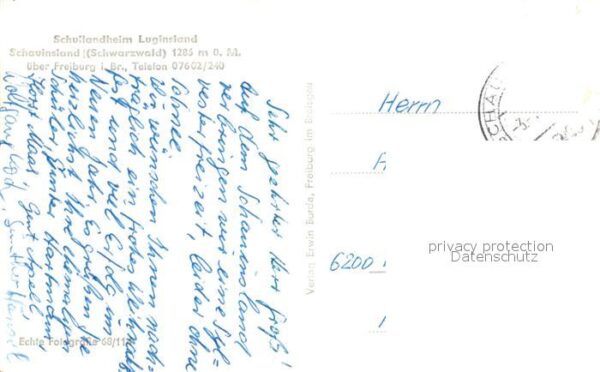 Schullandheim Luginsland
Schauinsland (Schwarzwald) 1285 m ü. M.
über Freiburg i. Br., Telefon 07602/240
Sehr geehrter Herr
auf dem Schauinsland
verbringen wir eine Syl-
vesterfreizeit, leider ohne
Schnee.
Wir wünschen Ihnen nach-
träglich ein frohes Weihnachts-
fest und viel Erfolg im
Neuen Jahr. Es grüßen Sie
herzlichst Ihre ehemaligen
Schüler, Günter Hartmann,
Horst Maar, Gunt
Wolfgang Koch, Günther
Echte Fotografie 68/11
Verlag Erwin Burda, Freiburg im Breisgau
Herrn
6200
privacy protection
Datenschutz
SCHAU